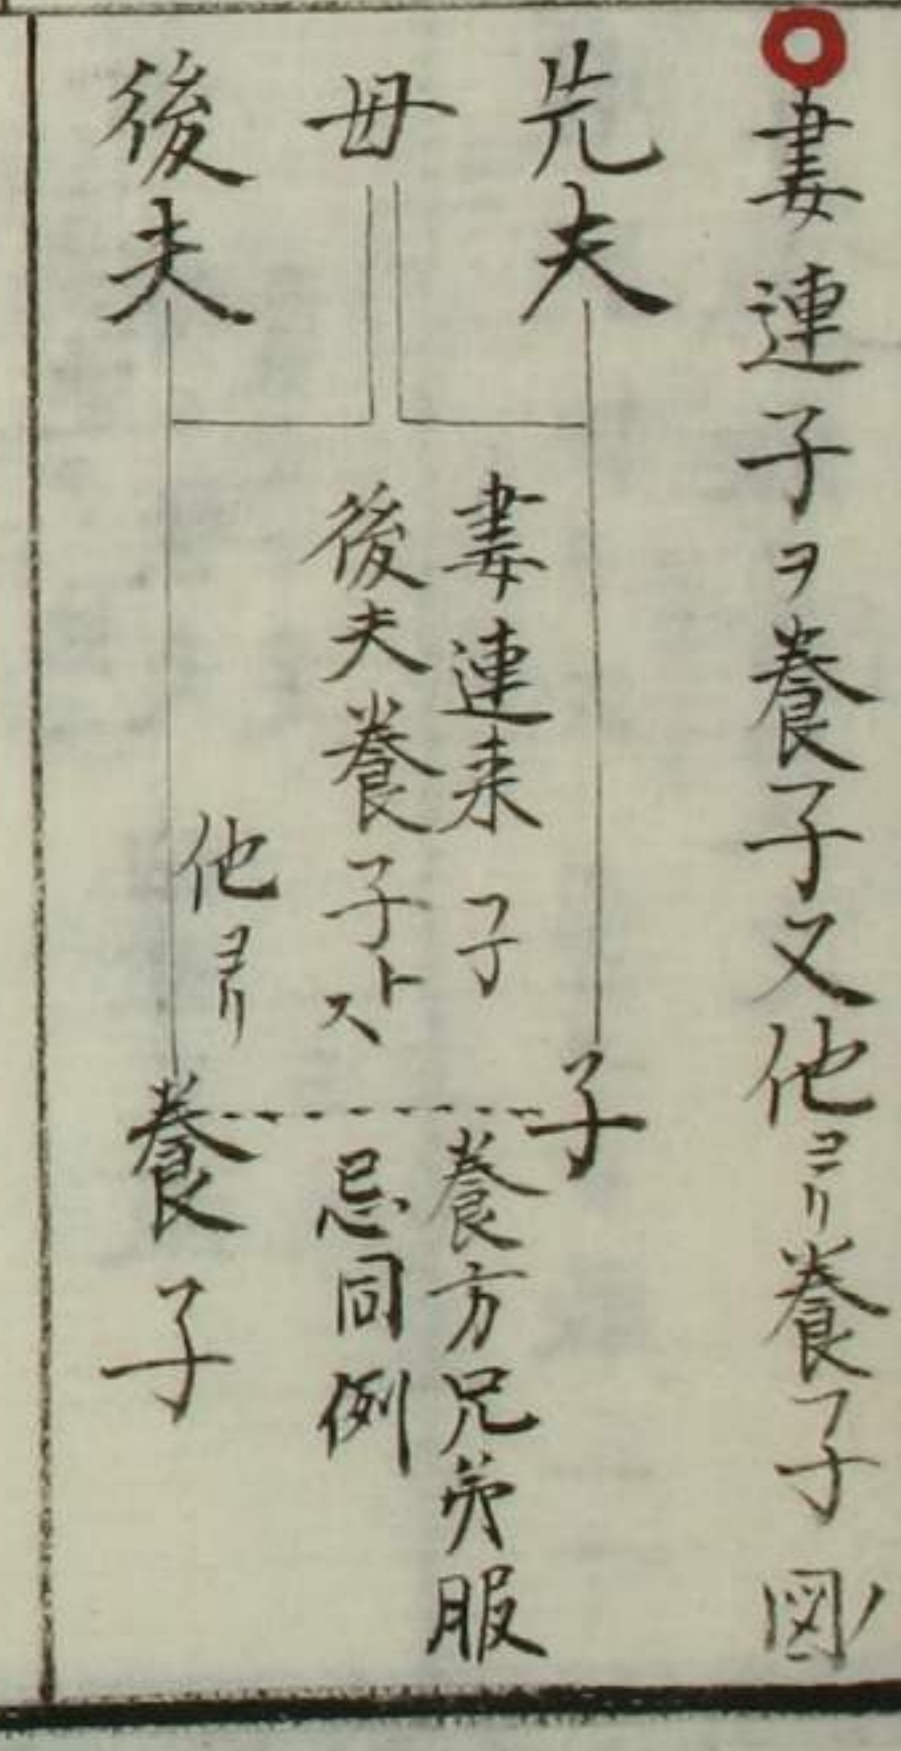 妻連子ヲ養子又他ヨリ養子ノ図
先夫
母
後夫
妻連来子
後夫養子トス
他ヨリ
子
養子
養方兄弟服
忌同例